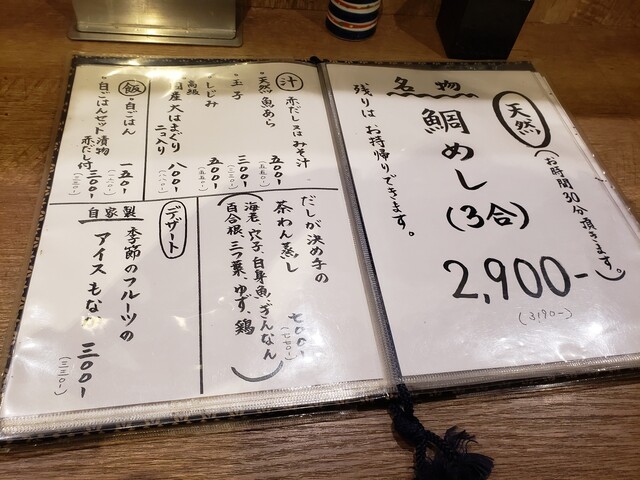 名物
天然
鯛めし
(3合)
2,900-
(3190-)
(お時間30分頂きます。)
残りは お持帰りできます。
汁
赤だし又はみそ汁
・天然魚あら
五〇〇-
(五五〇-)
・玉子
三〇〇-
(三三〇-)
・しじみ
五〇〇-
(五五〇-)
・高級国産大はまぐり
二コ入り
八〇〇-
飯
・白ごはん
一五〇-
・白ごはんセット 漬物 赤だし付
三〇〇-
(三三〇-)
だしが決め手の
茶わん蒸し
七〇〇-
(七七〇-)
(海老、穴子、白身魚、ぎんなん
百合根、三つ葉、ゆず、鶏)
デザート
自家製
季節のフルーツの
アイスもなか
三〇〇-
(三三〇-)